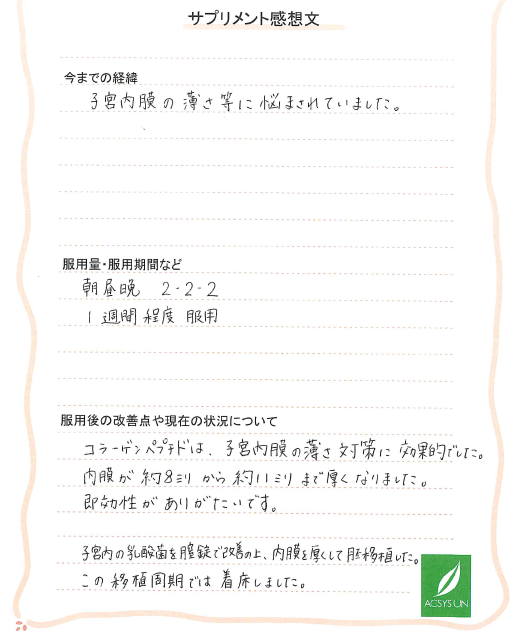 サプリメント感想文
今までの経緯
子宮内膜の薄さ等に悩まされていました。
服用量・服用期間など
朝昼晩 2-2-2
1週間程度 服用
服用後の改善点や現在の状況について
コラーゲンペプチドは、子宮内膜の薄さ対策に効果的でした。
内膜が約8ミリから約11ミリまで厚くなりました。
即効性がありがたいです。
子宮内の乳酸菌を膣錠で改善の上、内膜を厚くして胚移植した。
この移植周期では着床しました。
ACSYSUN